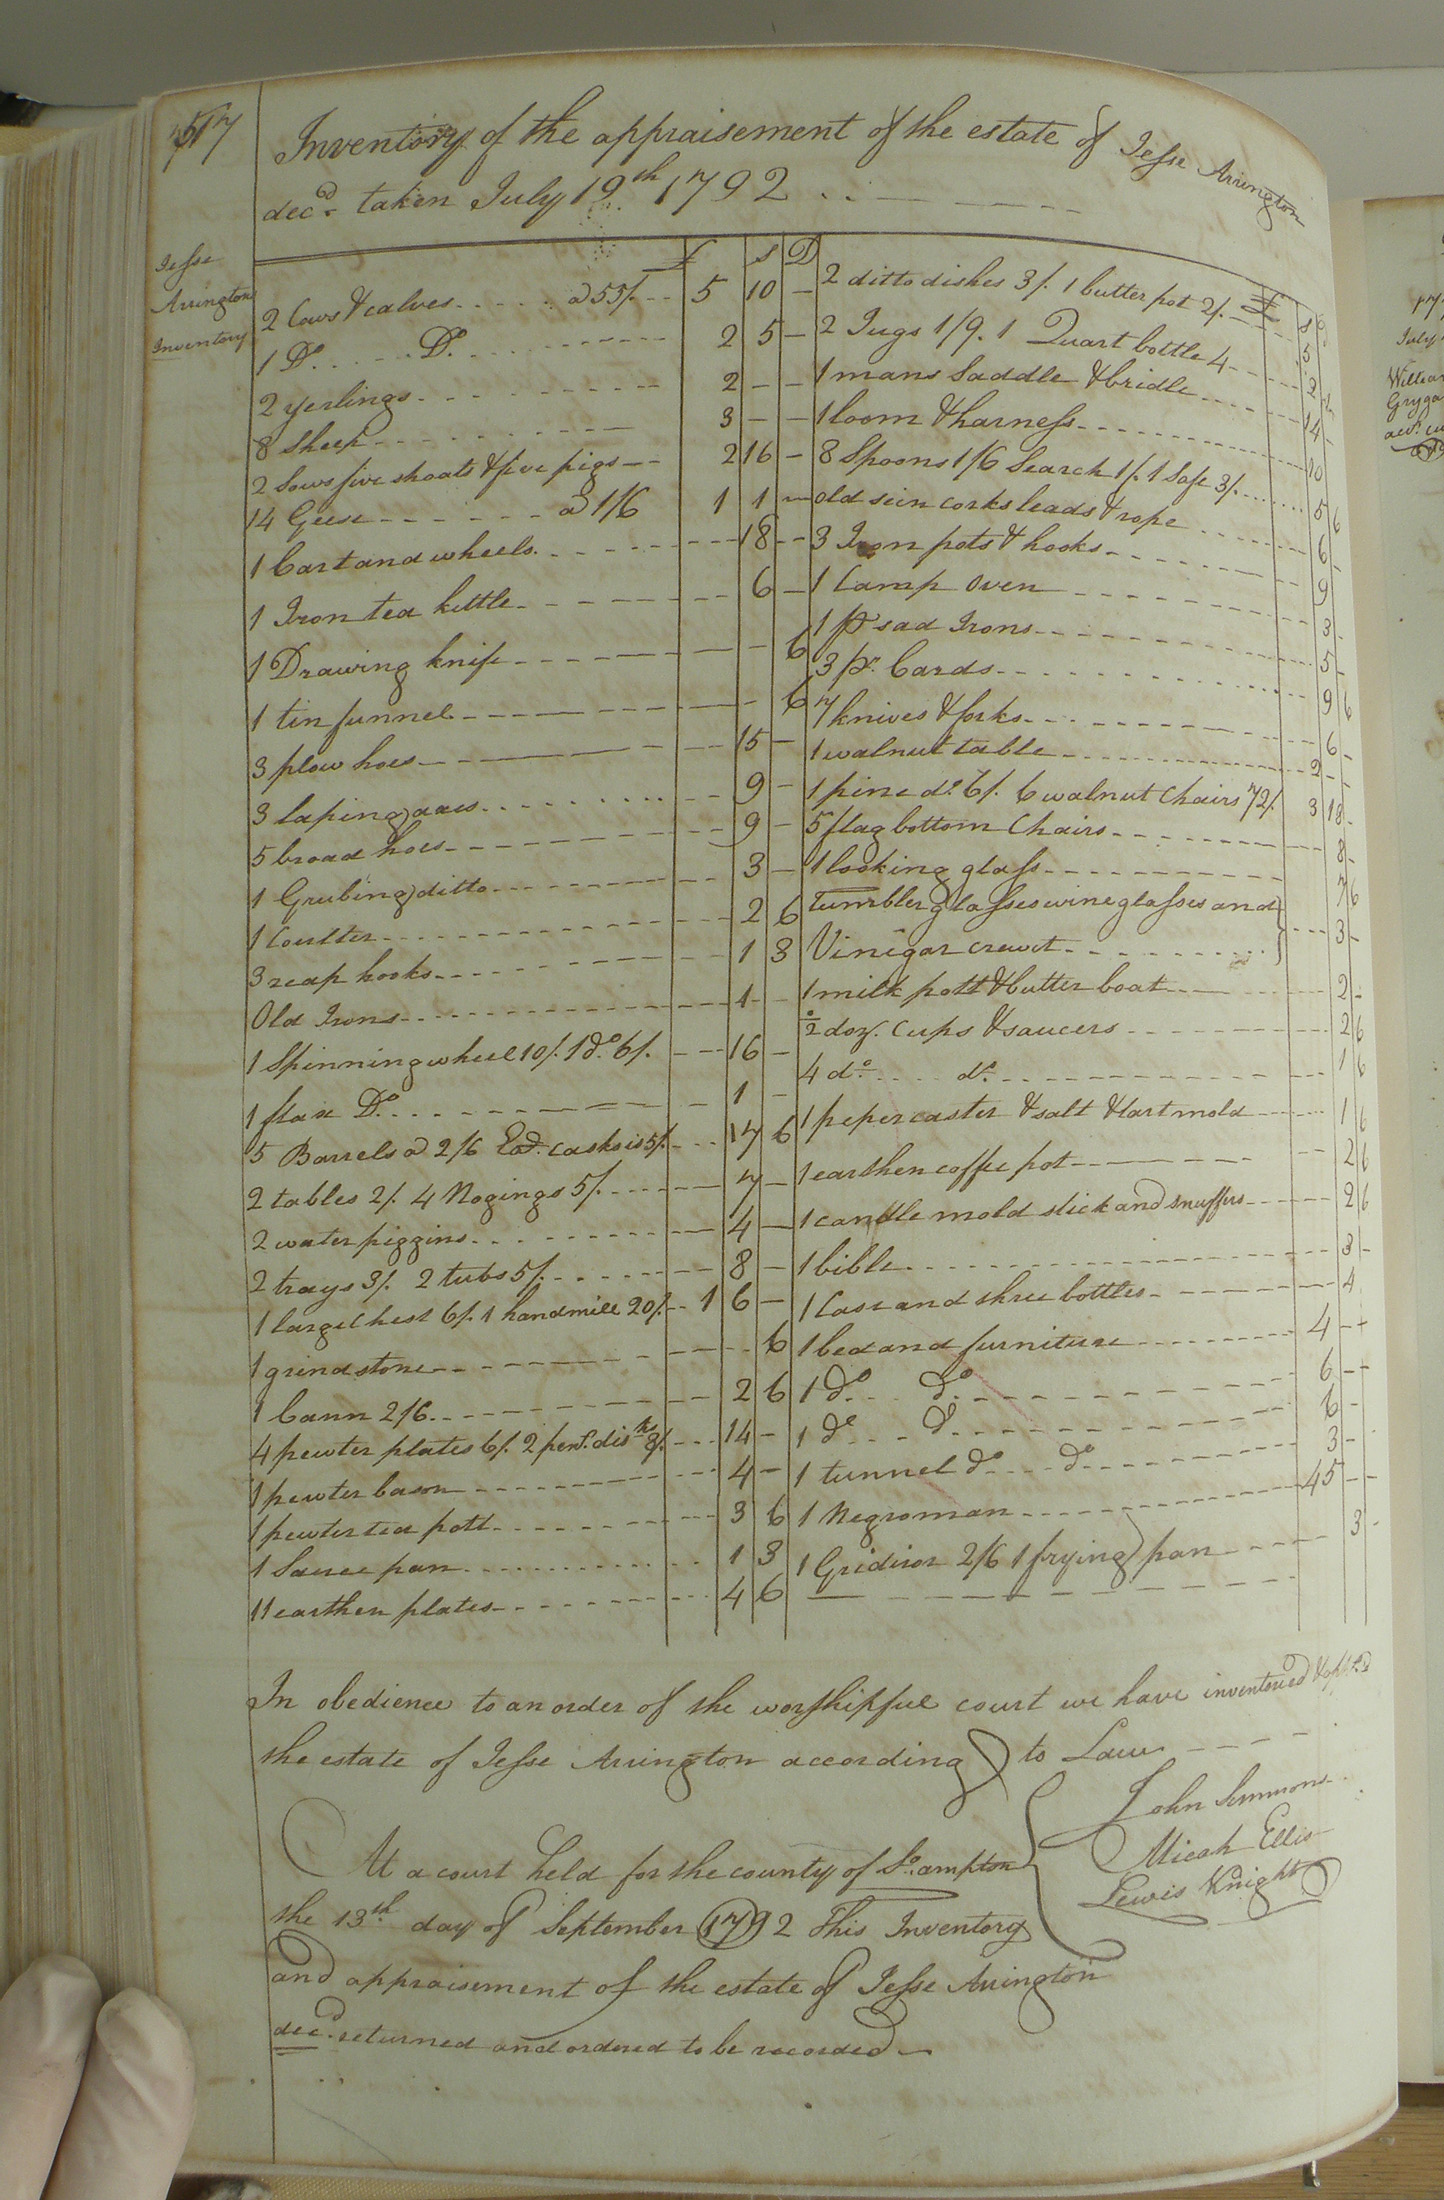 517
Inventory of the appraisement of the estate of Jesse Arrington
decd. taken July 19th 1792
Jesse
Arringtons
Inventory
£ S D
2 Cows & calves a 55/. 5 10 –
1 Do. Do. 2 5 –
2 yerlings 2 – –
8 Sheep 3 – –
2 Sows five shoats & five pigs 2 16 –
14 Geese a 1/6 1 1 –
1 Cart and wheels 18 –
1 Iron tea kettle 6 –
1 Drawing knife 6
1 tin funnel 6
3 plow hoes 15 –
3 laping axes 9 –
5 broad hoes 9 –
1 Grubing ditto 3 –
1 Coulter 2 6
3 reap hooks 1 3
Old Irons 1 –
1 Spinning wheel 10/. 1 do. 6/. 16 –
1 flax Do. 1 –
5 Barrels a 2/6 casks is 5/. 17 6
2 tables 2/. 4 Nogings 5/. 7 –
2 water piggins 4 –
2 trays 3/. 2 tubs 5/. 8 –
1 large Chest 6/. 1 handmill 20/. 1 6 –
1 grindstone 6
1 Cann 2/6 2 6
4 pewter plates 6/. 2 pewt. dishs 8/. 14 –
1 pewter bason 4 –
1 pewter tea pott 3 6
1 Sauce pan 1 3
11 earthen plates 4 6
£ S D
2 ditto dishes 3/. 1 butter pot 2/. 5
2 Jugs 1/9. 1 Quart bottle 4 2 1
1 mans Saddle & bridle 14 –
1 loom & harness 10
8 Spoons 1/6 Search 1/. 1 Safe 3/. 5 6
old sein corks leads & rope 6
3 Iron pots & hooks 9
1 Camp Oven 3 –
1 pr sad Irons 5 –
3 pr. Cards 9 6
7 knives & forks 6 –
1 walnut table 2 – –
1 pine do. 6/. 6 walnut Chairs 72/. 3 18 –
5 flag bottom Chairs 8 –
1 looking glass 7 6
Tumbler glasses wine glasses and
Vinigar crewit 3 –
1 milk pott & butter boat 2 –
½ doz. Cups & saucers 2 6
4 do. do. 1 6
1 peper caster & salt & tart mold 1 6
1 earthen coffee pot 2 6
1 candle mold stick and snuffers 2 6
1 bible 3 –
1 Case and three bottles 4
1 bed and furniture 4 – –
1 do. do. 6 – –
1 do do 6 –
1 tunnel do do. 3 –
1 Negroman 45 – –
1 Gridiron 2/6 1 frying pan 3 –
In obedience to an order of the worshipful court we have inventoried &
the estate of Jesse Arrington according to Law
John Simmons
Micah Ellis
Lewis Knight
At a court held for the county of So.ampton
the 13th. day of September 1792 This Inventory
and appraisement of the estate of Jesse Arrington
decd. returned and ordered to be recorded
177
July
William